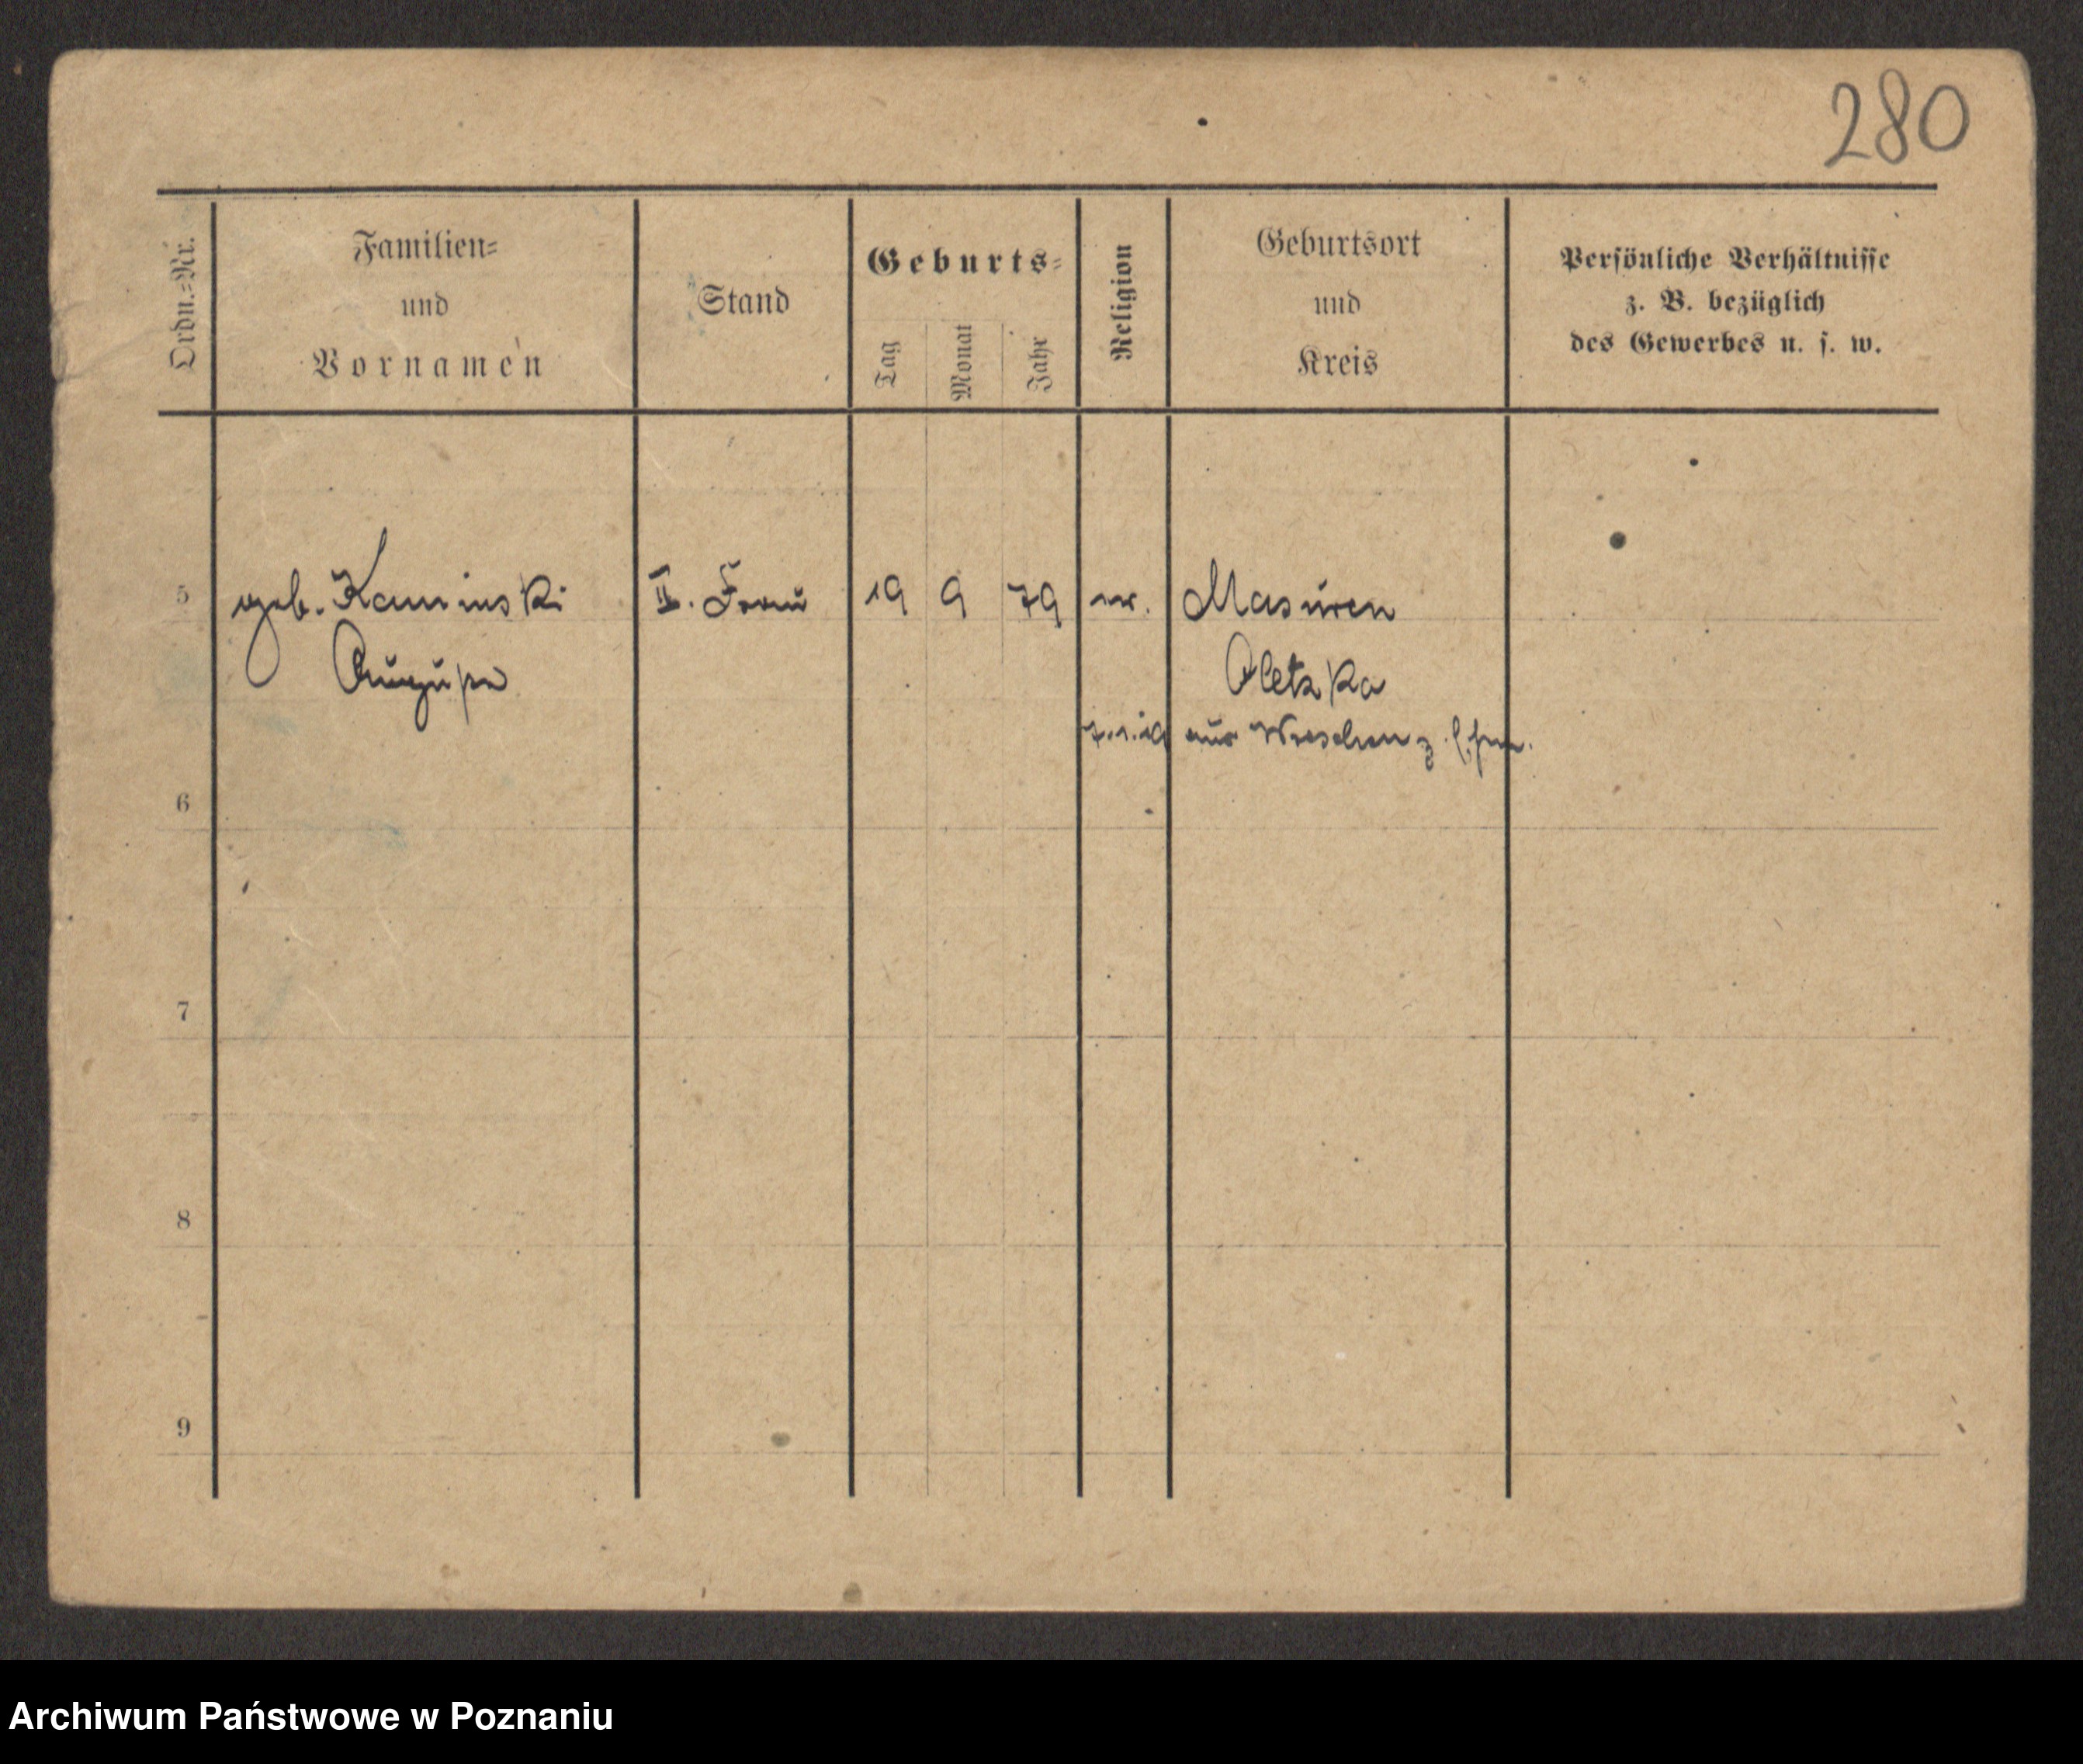 280
Ordn.=Nr.
Familien=
und
Vornamen
Stand
Geburts=
Tag
Monat
Jahr
Religion
Geburtsort
und
Kreis
Persönliche Verhältnisse
z. B. bezüglich
des Gewerbes u. s. w.
5 geb. Kaminski II. Frau 19 9 79 Masuren
Auguste Oletzko
7.1.19 aus Wreschen z.
6
7
8
9
Archiwum Państwowe w Poznaniu